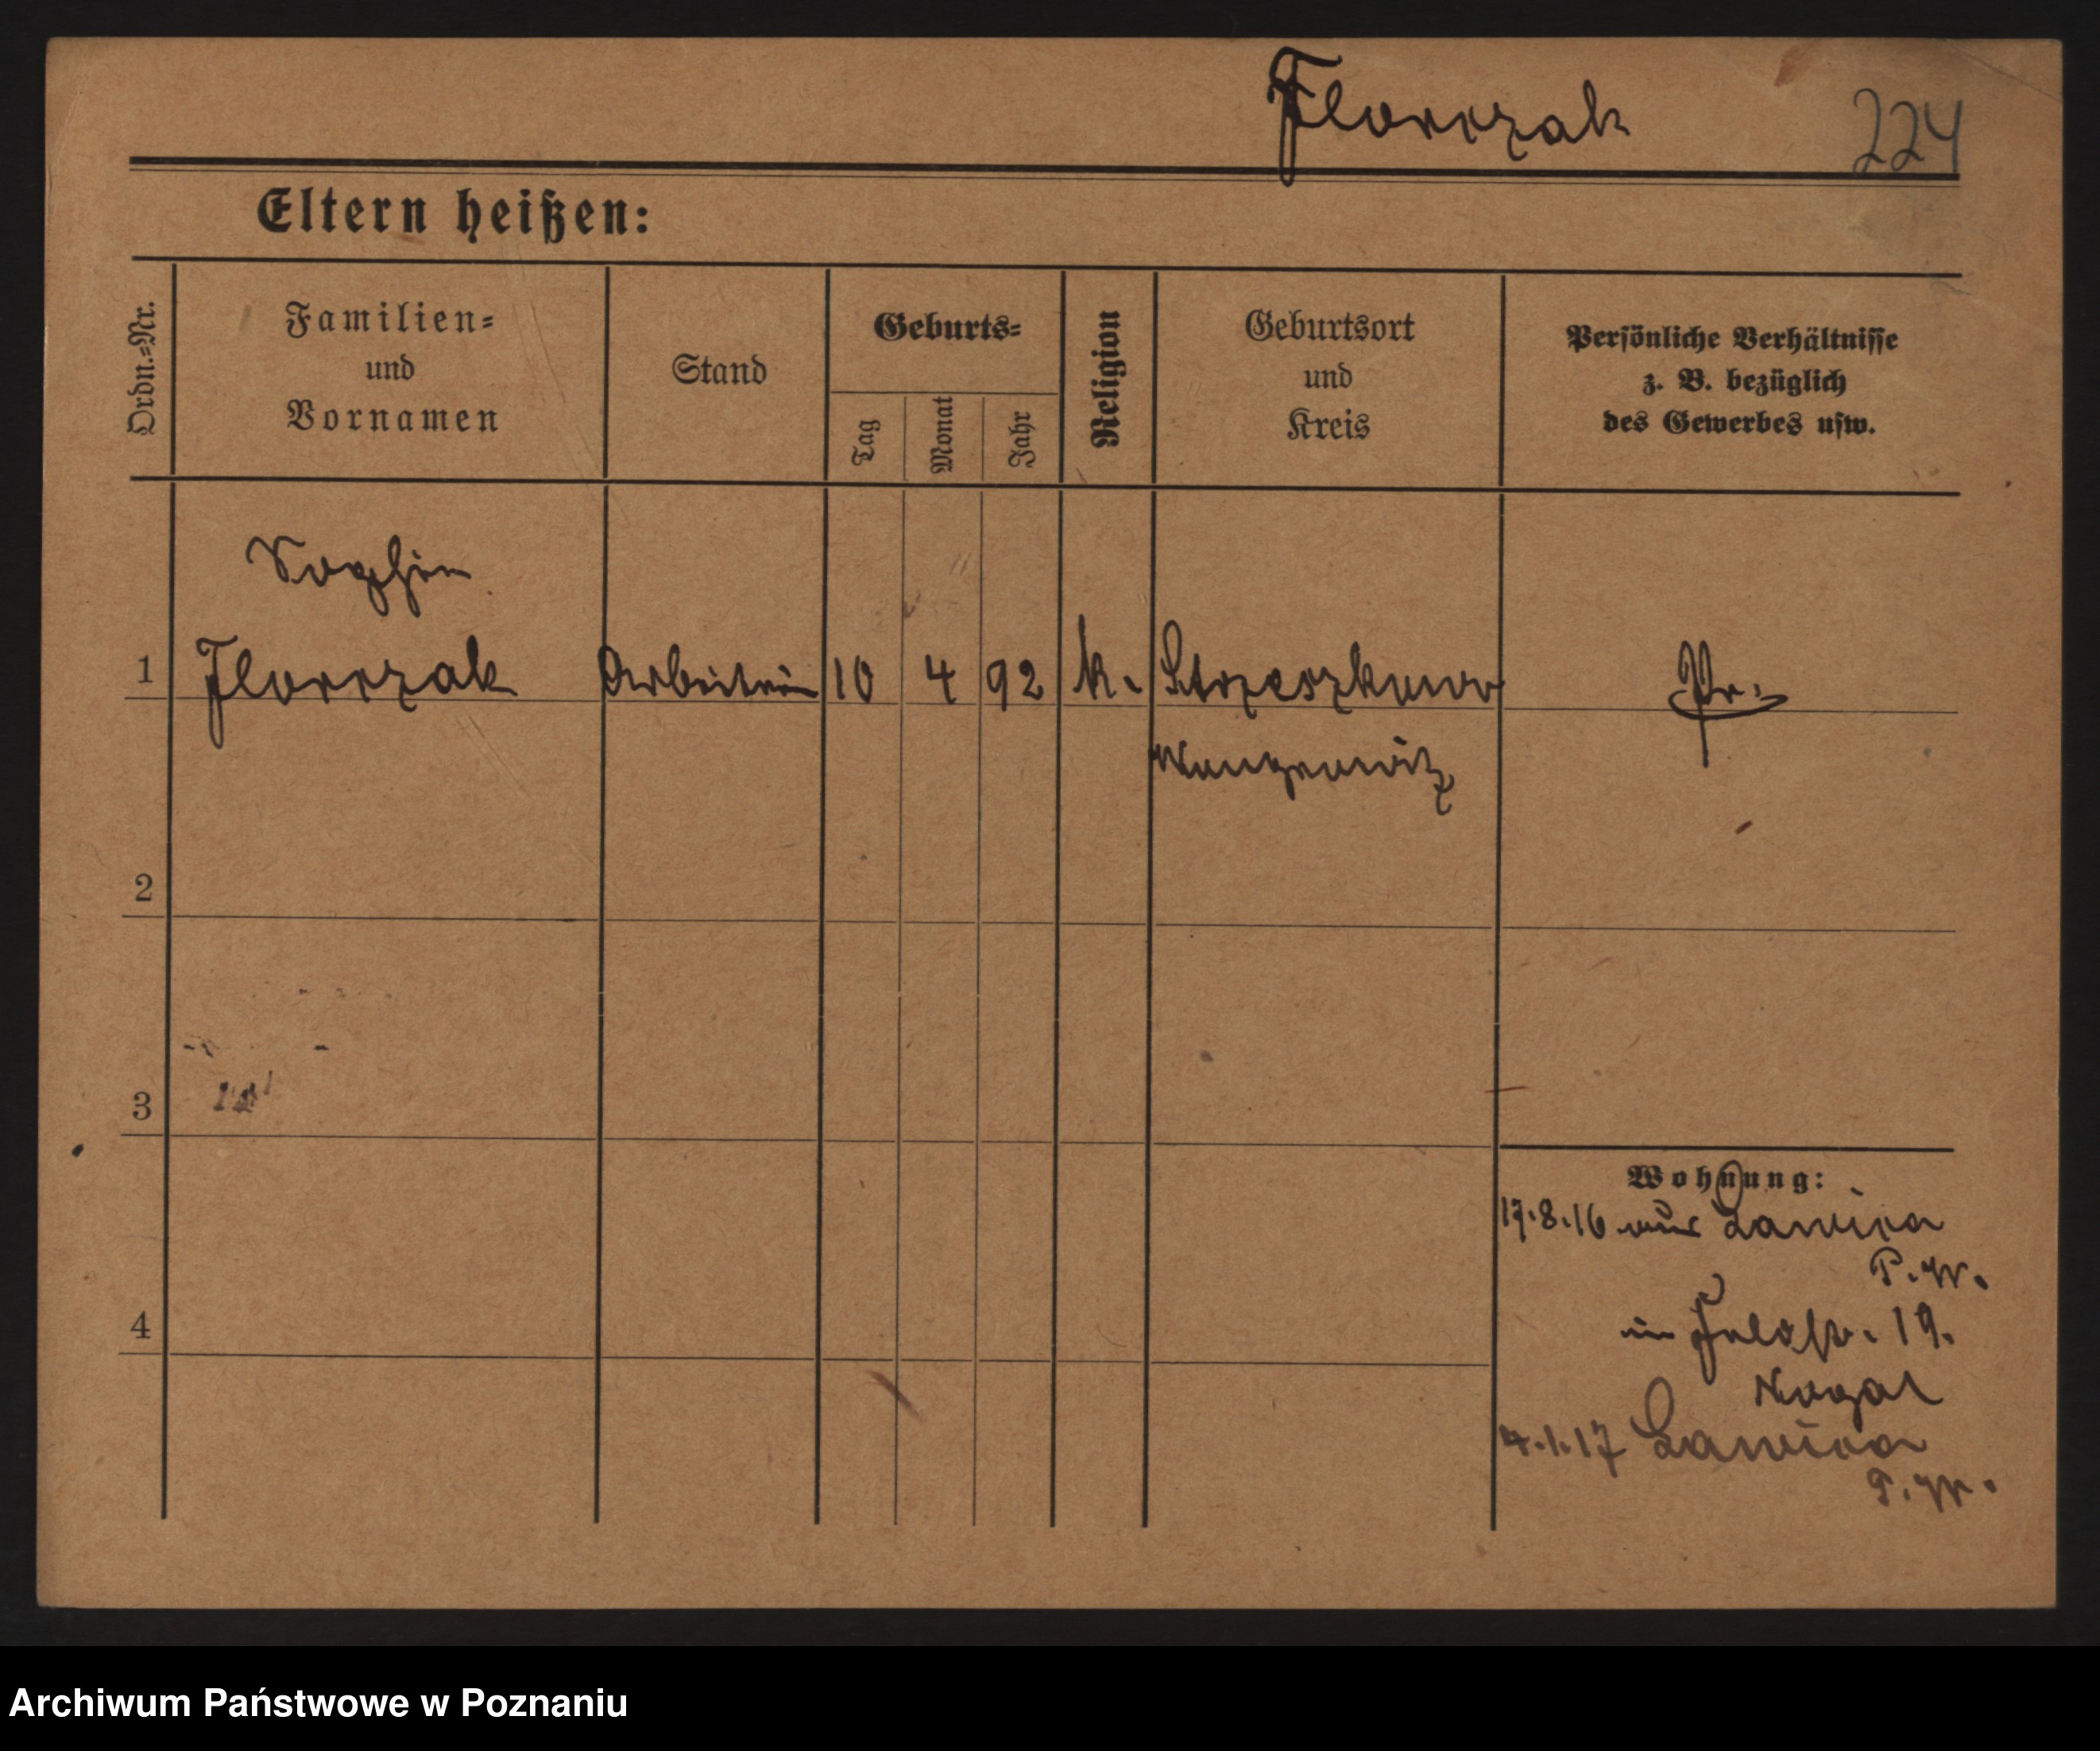 Florczak 224
Eltern heißen:
Ordn.=Nr.
Familien=
und
Vornamen
Stand
Geburts=
Tag
Monat
Jahr
Religion
Geburtsort
und
Kreis
Persönliche Verhältnisse
z. B. bezüglich
des Gewerbes usw.
Sophie
1 Florczak Arbeiterin 10 4 92 k. Strzeszkowo Pr.
Wongrowitz
2
3
4
Wohnung:
17.8.16 aus Lawica
P.W.
in Feldstr. 19.
4.1.17 Lawica
P.W.
Archiwum Państwowe w Poznaniu